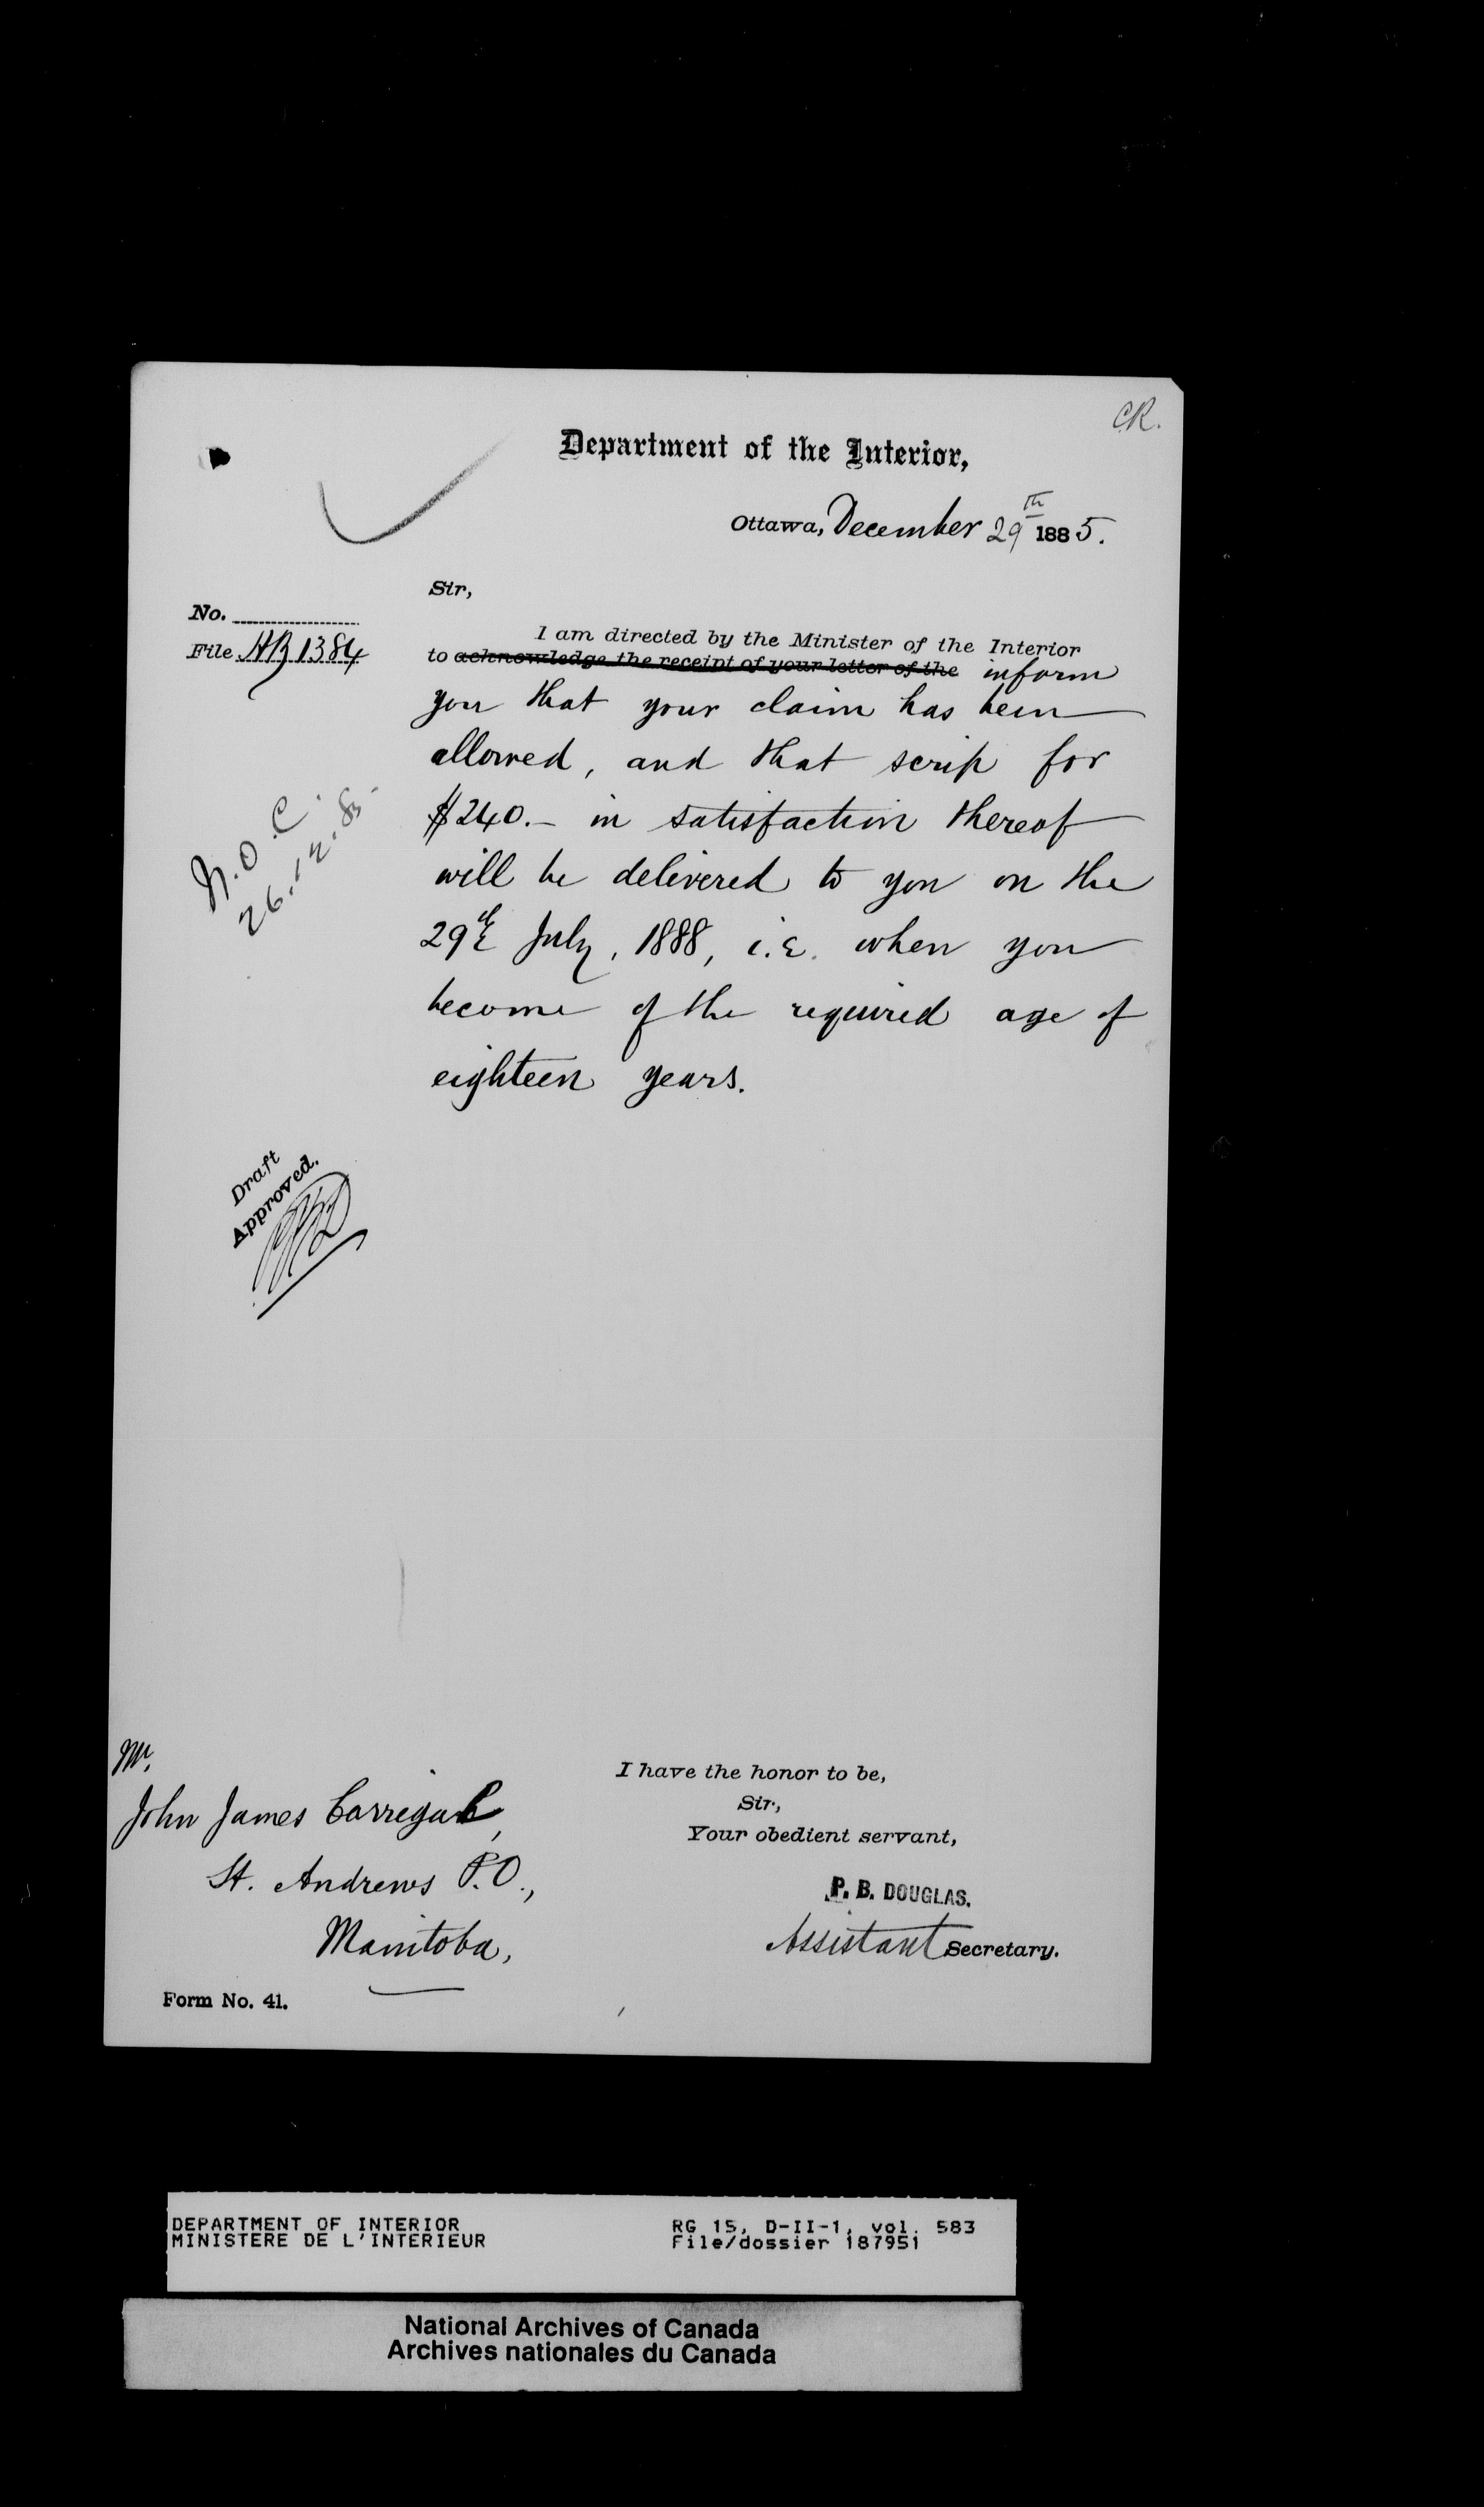 C.R.
Department of the Interior,
Ottawa, December 29th 1885.
Sir,
No.
File HB 1384
I am directed by the Minister of the Interior
to acknowledge the receipt of your letter of the inform
you that your claim has been
allowed, and that scrip for
$240.— in satisfaction thereof
will be delivered to you on the
29th July, 1888, i.e. when you
become of the required age of
eighteen years.
26.12.85.
Draft
Approved.
Mr.
John James Corrigal,
St. Andrews P.O.,
Manitoba,
I have the honor to be,
Sir,
Your obedient servant,
P. B. DOUGLAS.
Assistant Secretary.
Form No. 41.
DEPARTMENT OF INTERIOR
MINISTERE DE L'INTERIEUR
RG 15, D-II-1, vol. 583
File/dossier 187951
National Archives of Canada
Archives nationales du Canada